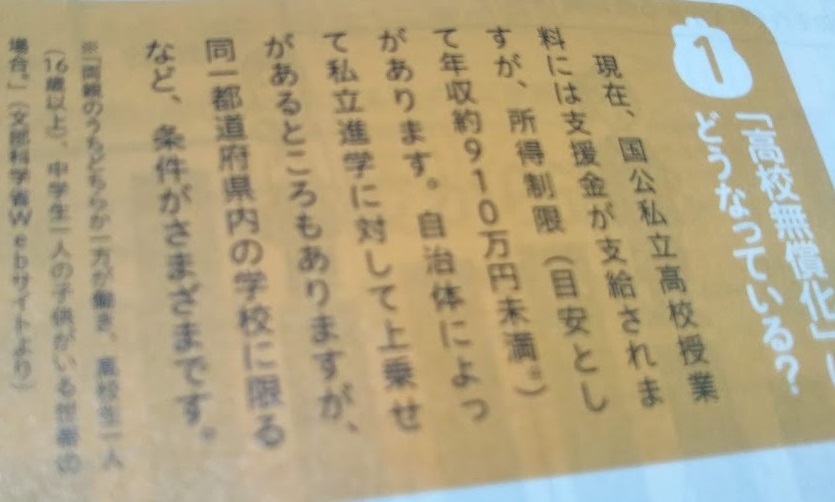 1
「高校無償化」は
どうなっている?
現在、国公私立高校授業
料には支援金が支給されま
すが、所得制限(目安とし
て年収約910万円未満※)
があります。自治体によっ
て私立進学に対して上乗せ
があるところもありますが、
同一都道府県内の学校に限る
など、条件がさまざまです。
※「両親のうちどちらか一方が働き、高校生一人
(16歳以上)、中学生一人の子供がいる世帯の
場合。」(文部科学省Webサイトより)